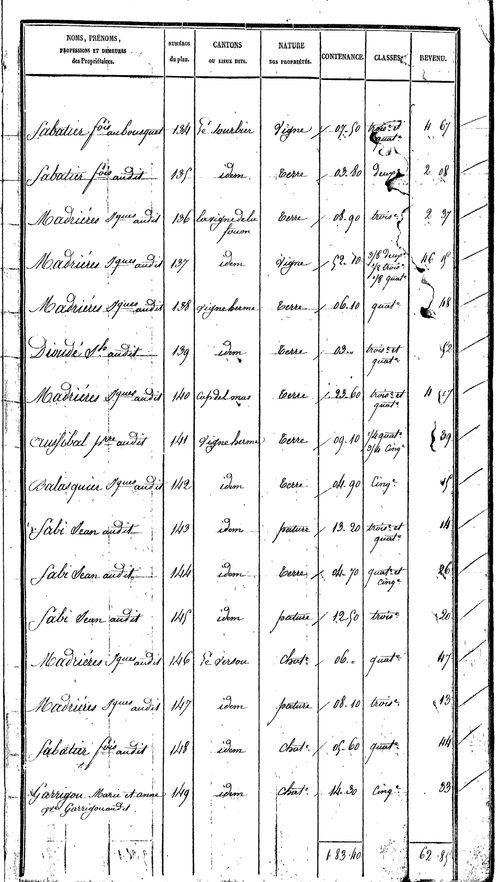 NOMS, PRÉNOMS, PROFESSIONS ET DEMEURES des Propriétaires. NUMÉROS du plan. CANTONS OU LIEUX DITS. NATURE DES PROPRIÉTÉS. CONTENANCE. CLASSES. REVENU.
Sabatier fois aubousquet 134 Le Sourbier Vigne 07.50 trois.e et quat.e 4 67
Sabatier fois audit 135 idem Terre 03.80 deux.e 2 08
Madriéres Jques audit 136 la vigne de la fouon Terre 08.90 trois.e 2 37
Madriéres Jques audit 137 idem Vigne 52.70 3/8 deux.e 3/8 trois.e 2/8 quat.e
Madriéres Jques audit 138 Vigne herme Terre 06.10 quat.e 48
Dioudé audit 139 idem Terre 03.. trois.e et quat.e 52
Madriéres Jques audit 140 Cap del mas Terre 23.60 trois.e et quat.e 4
audit 141 Vigne herme Terre 09.10 1/4 quat.e 3/4 Cinq.e 39
Balasquier Jques audit 142 idem Terre 04.90 Cinq.e
Sabi Jean audit 143 idem pature 13.20 trois.e et quat.e 14
Sabi Jean audit 144 idem Terre 04.70 quat.e et Cinq.e 26
Sabi Jean audit 145 idem pature 12.50 trois.e 20
Madriéres Jques audit 146 Le Versou Chat.e 06.. quat.e 47
Madriéres Jques audit 147 idem pature 08.10 trois.e 13
Sabatier fois audit 148 idem Chat.e 05.60 quat.e 44
Garrigou Marie et anne Garrigou audit. 149 idem Chat.e 14.30 Cinq.e 33
1 83.40 62.85